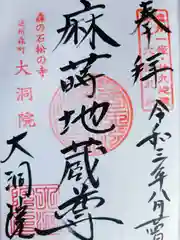 奉拝
令和三年八月
麻蒔地蔵尊
森の石松の寺
遠州森町
大洞院
大洞院